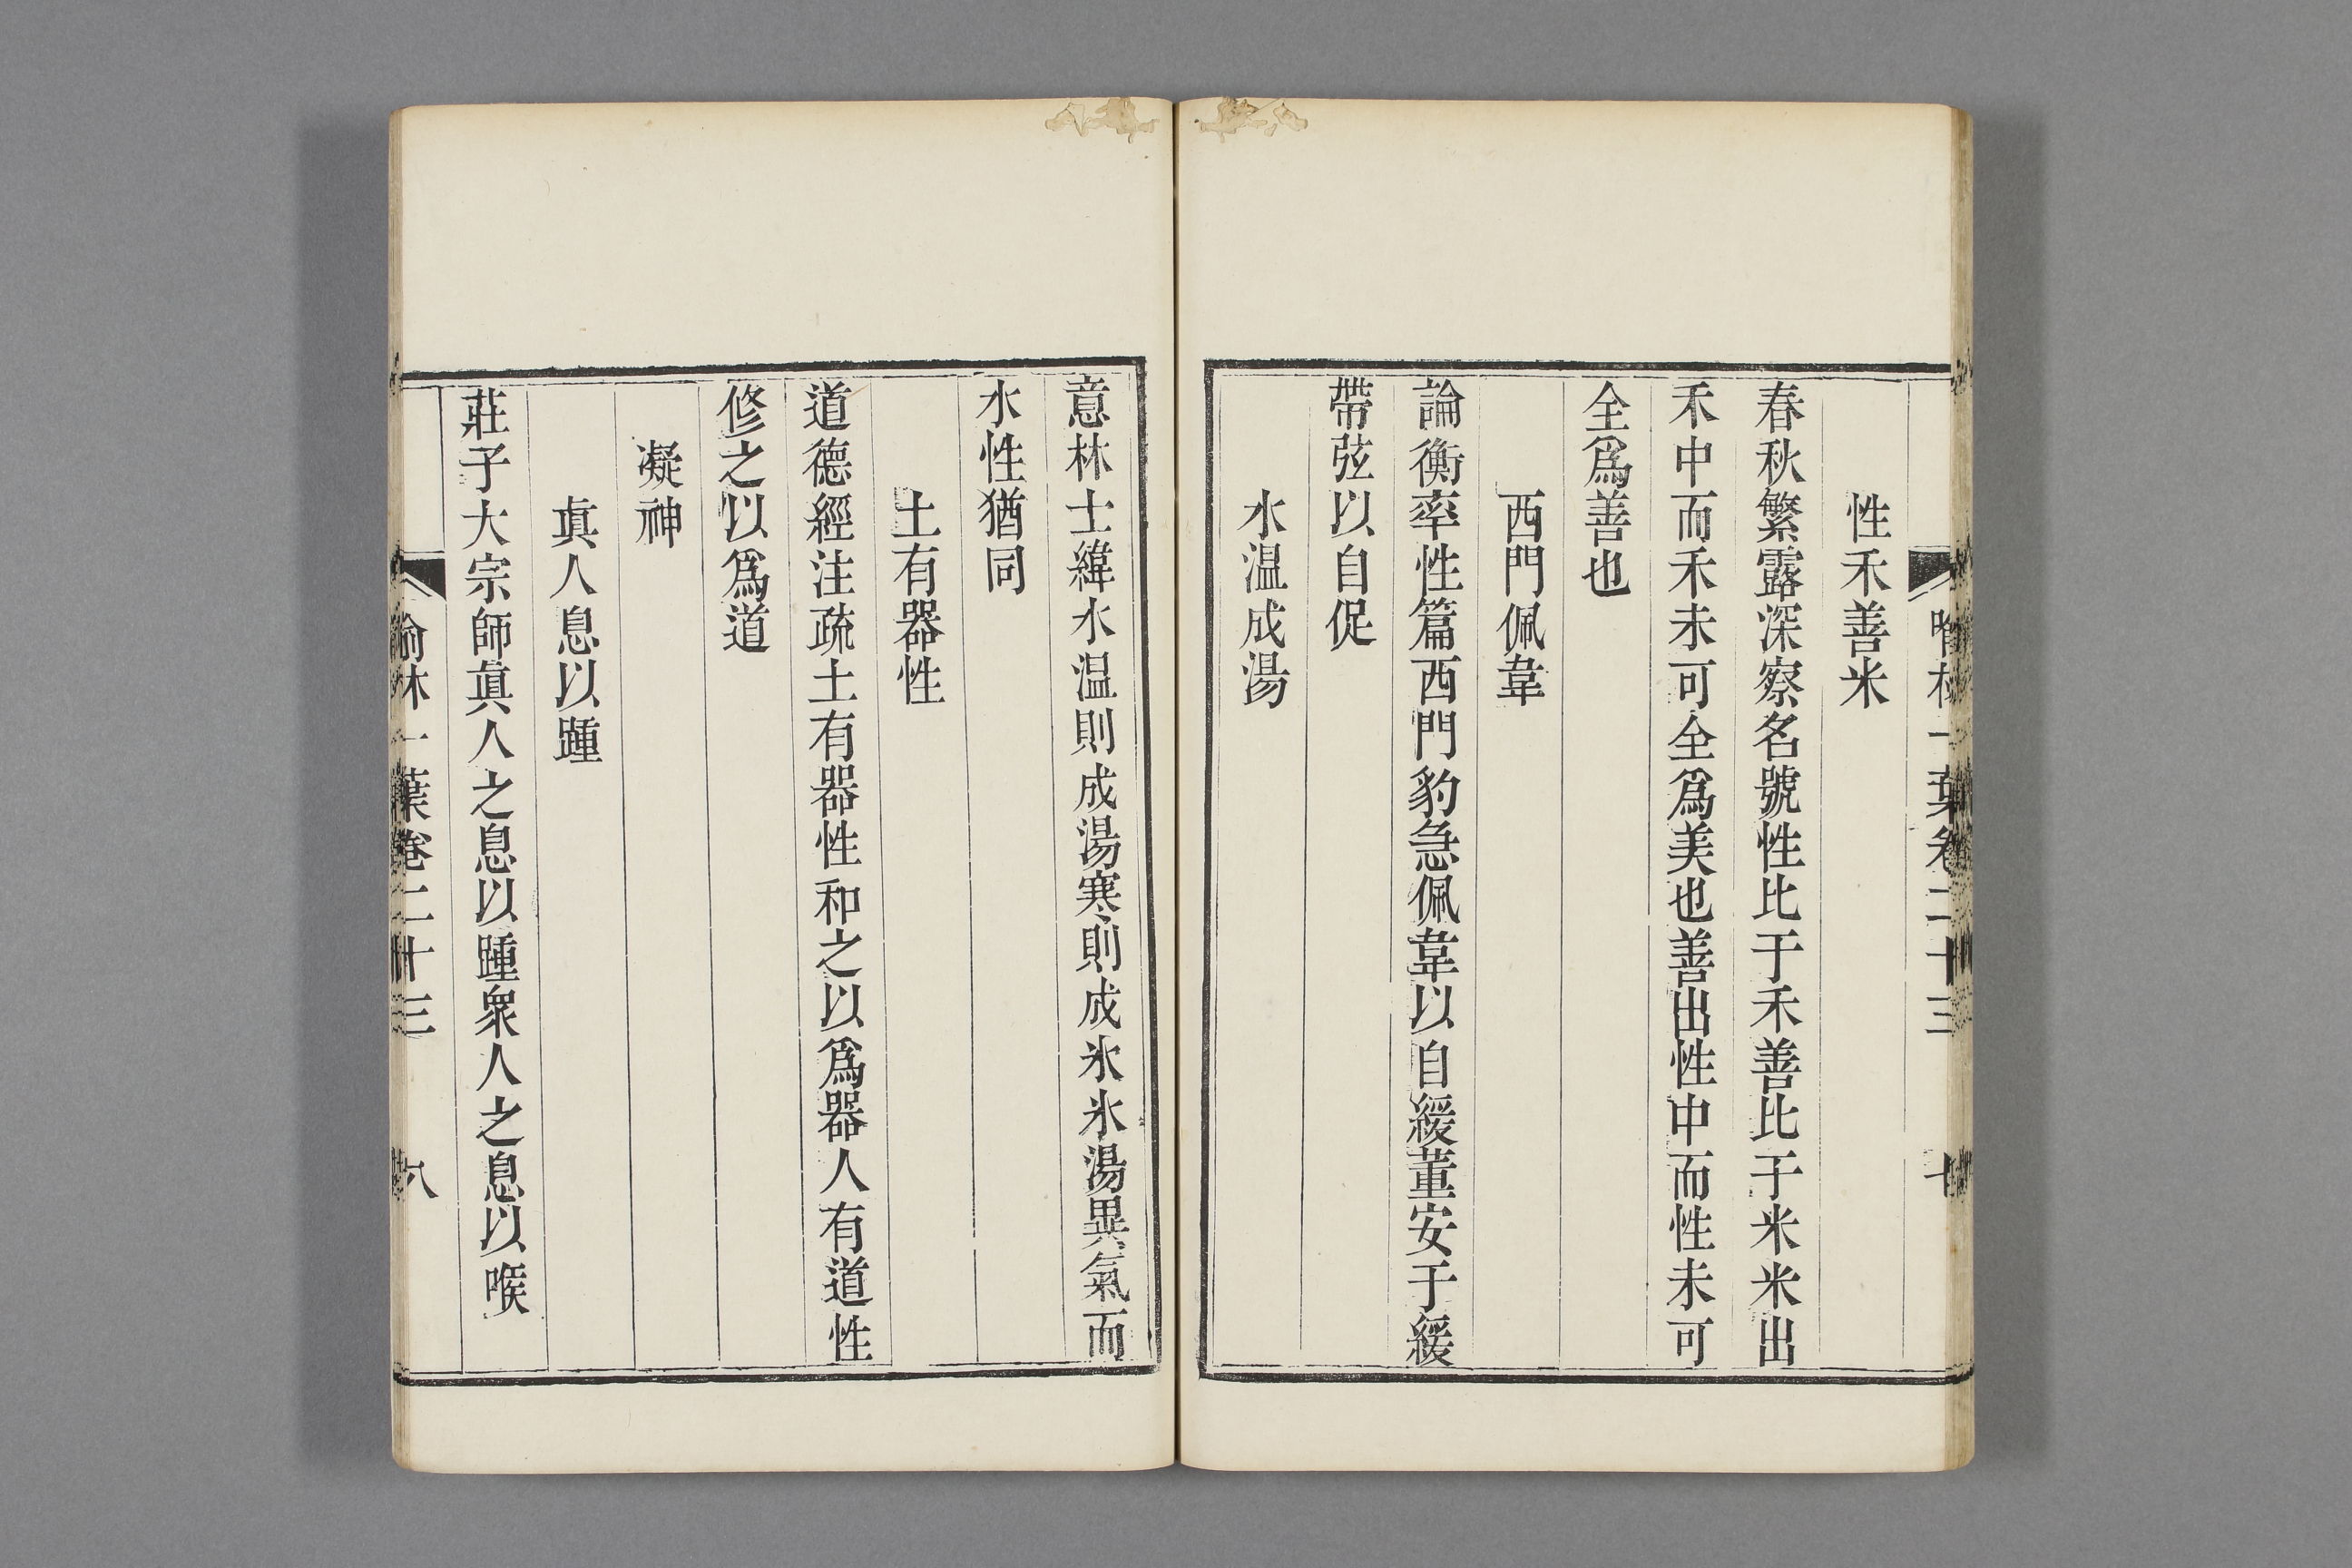 性禾善米
春秋繁露深察名號性比于禾善比于米米出
禾中而禾未可全爲美也善出性中而性未可
全爲善也
西門佩韋
論衡率性篇西門豹急佩韋以自緩董安于緩
帶弦以自促
水温成湯
意林士緯水温則成湯寒則成氷氷湯異氣而
水性猶同
土有器性
道德經注疏土有器性和之以爲器人有道性
修之以爲道
凝神
眞人息以踵
莊子大宗師眞人之息以踵衆人之息以喉
喻林一葉卷二十三 八